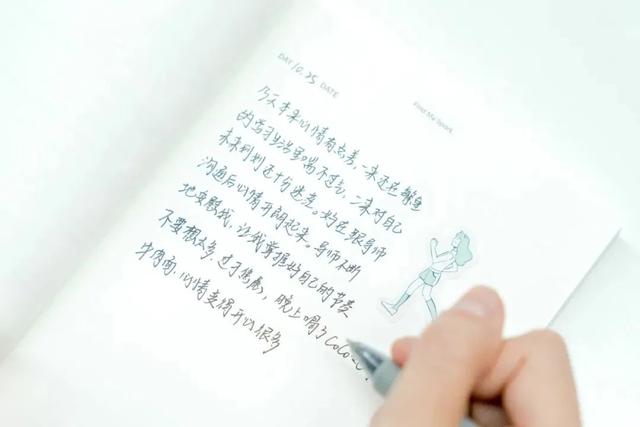 DAY 10.25 DATE
Find Me Spark
今天本来心情有点差,一来还在
的学习生活里喘不过气,二来对自己
未来计划还十分迷茫。好在跟导师
沟通后心情开朗起来。导师不断
地安慰我,让我掌握好自己的节奏
不要想太多,过于焦虑,晚上喝了CoCo
牛肉面,心情变得开心很多